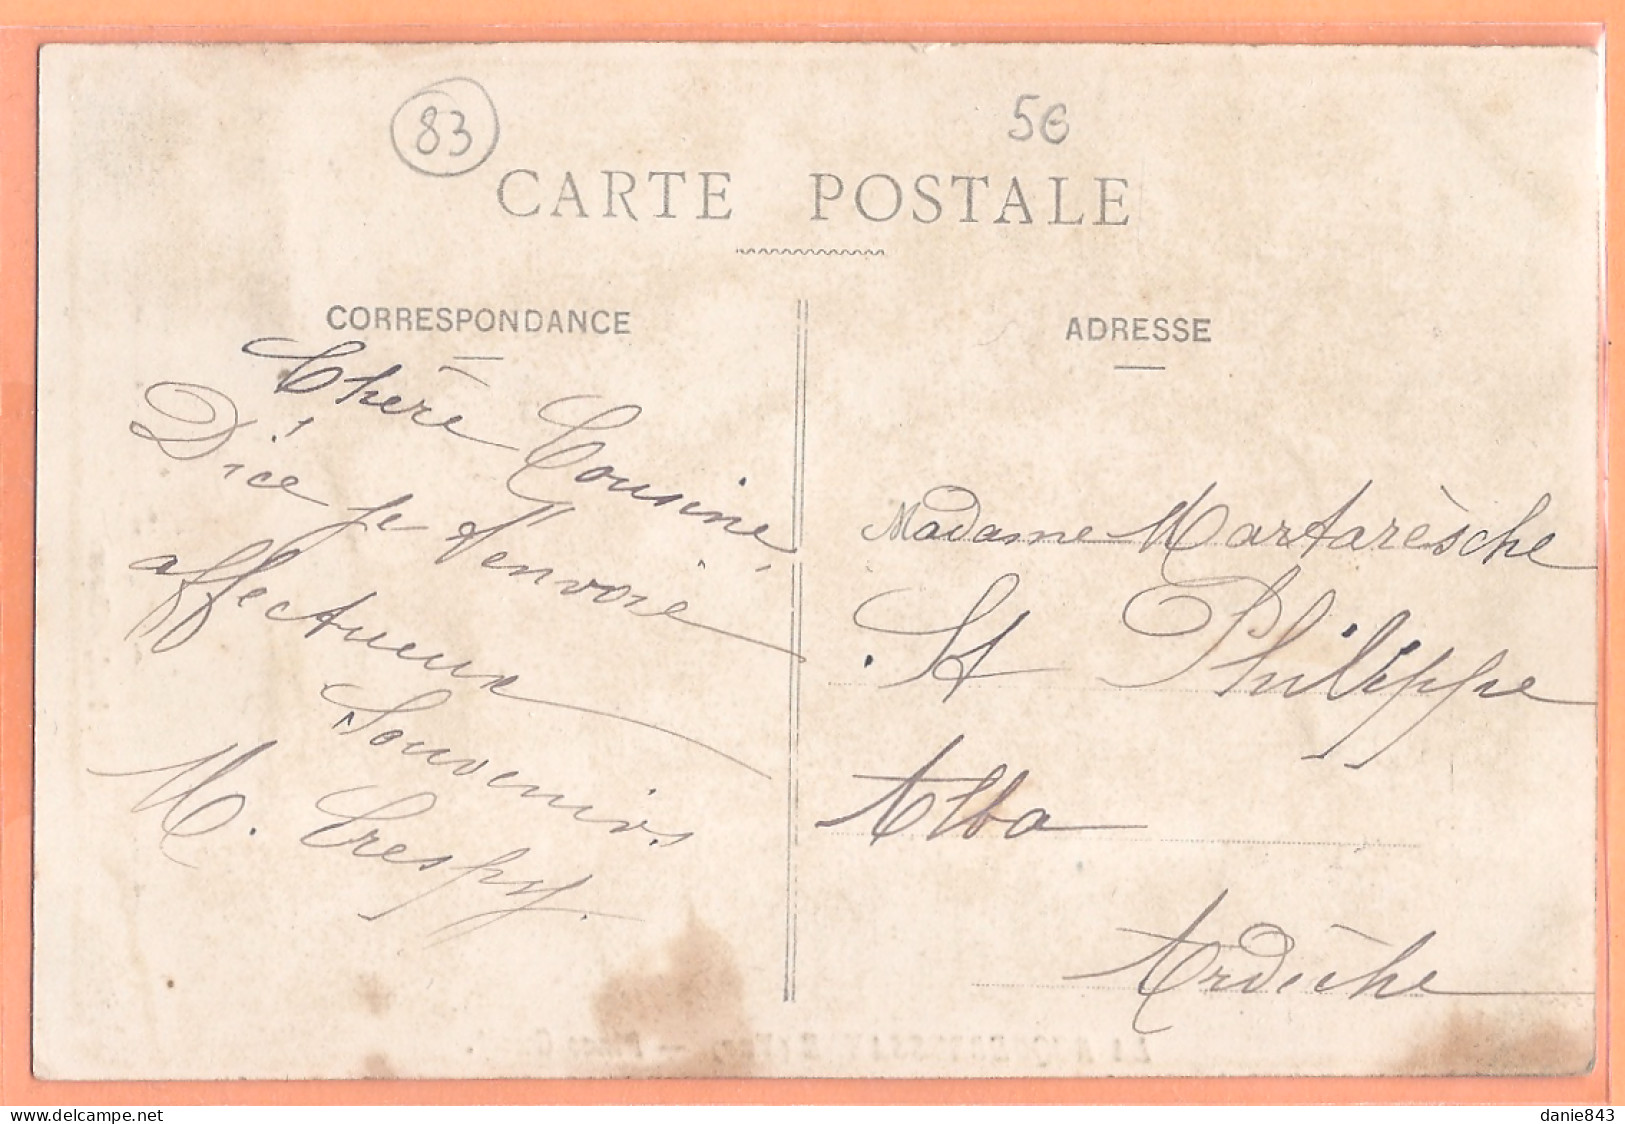 83
5€
CARTE POSTALE
CORRESPONDANCE
Chère Cousine,
D'ice je t'envoie
affectueux
Souvenirs.
M. Crespy.
ADRESSE
Madame Martarèsche
St Philippe
Alba
Ardèche
www.delcampe.net
danie843